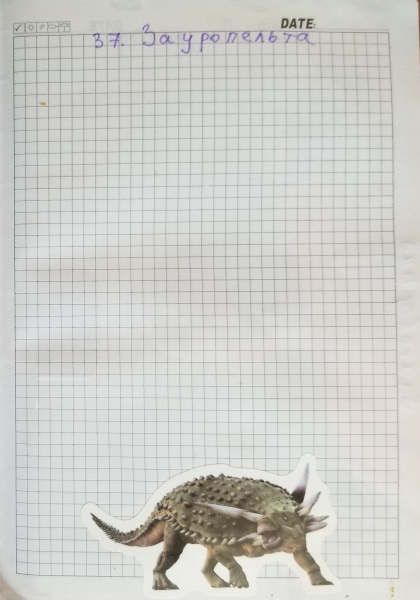 DATE:
37. Зауропельта